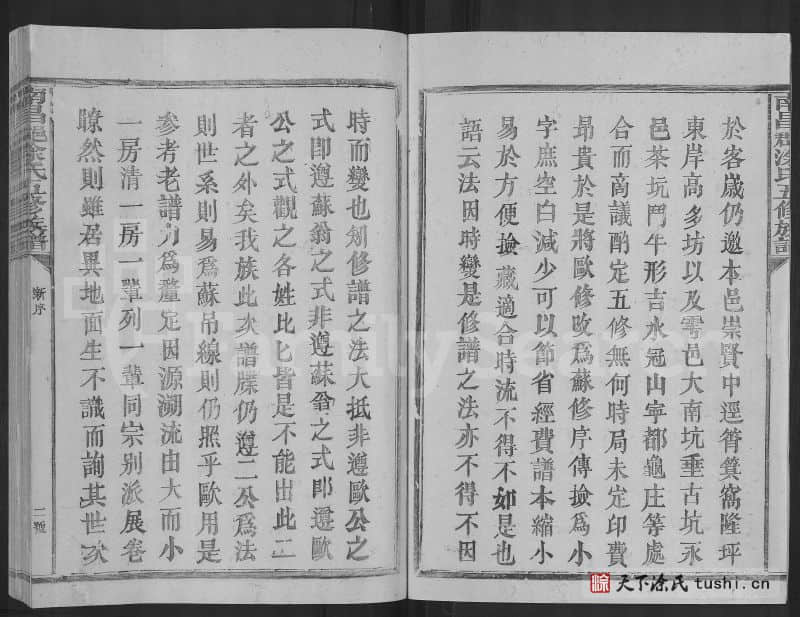 於客歲仍邀本邑崇賢中逕筲箕窩隆坪
東岸高多坊以及雩邑大南坑垂古坑永
邑茶坑鬥牛形吉水冠山宁都龜庄等處
合而商議酌定五修無何時局未定印費
昻貴於是將歐修改爲蘇修序傳撿爲小
字庶空白減少可以節省經費譜本縮小
易於方便撿藏適合時流不得不如是也
語云法因時變是修譜之法亦不得不因
時而變也矧修譜之法大抵非遵歐公之
式卽遵蘇翁之式非遵蘇翁之式卽遵歐
公之式觀之各姓比匕皆是不能出此二
者之外矣我族此次譜牒仍遵二公爲法
則世系則易爲蘇吊線則仍照乎歐用是
參考老譜力爲釐定因源溯流由大而小
一房清一房一輩列一輩同宗别派展卷
瞭然則雖居異地面生不識而詢其世次
南昌郡涂氏五修族譜
新序
二
涂
天下涂氏
tushi.cn
FamilySearch